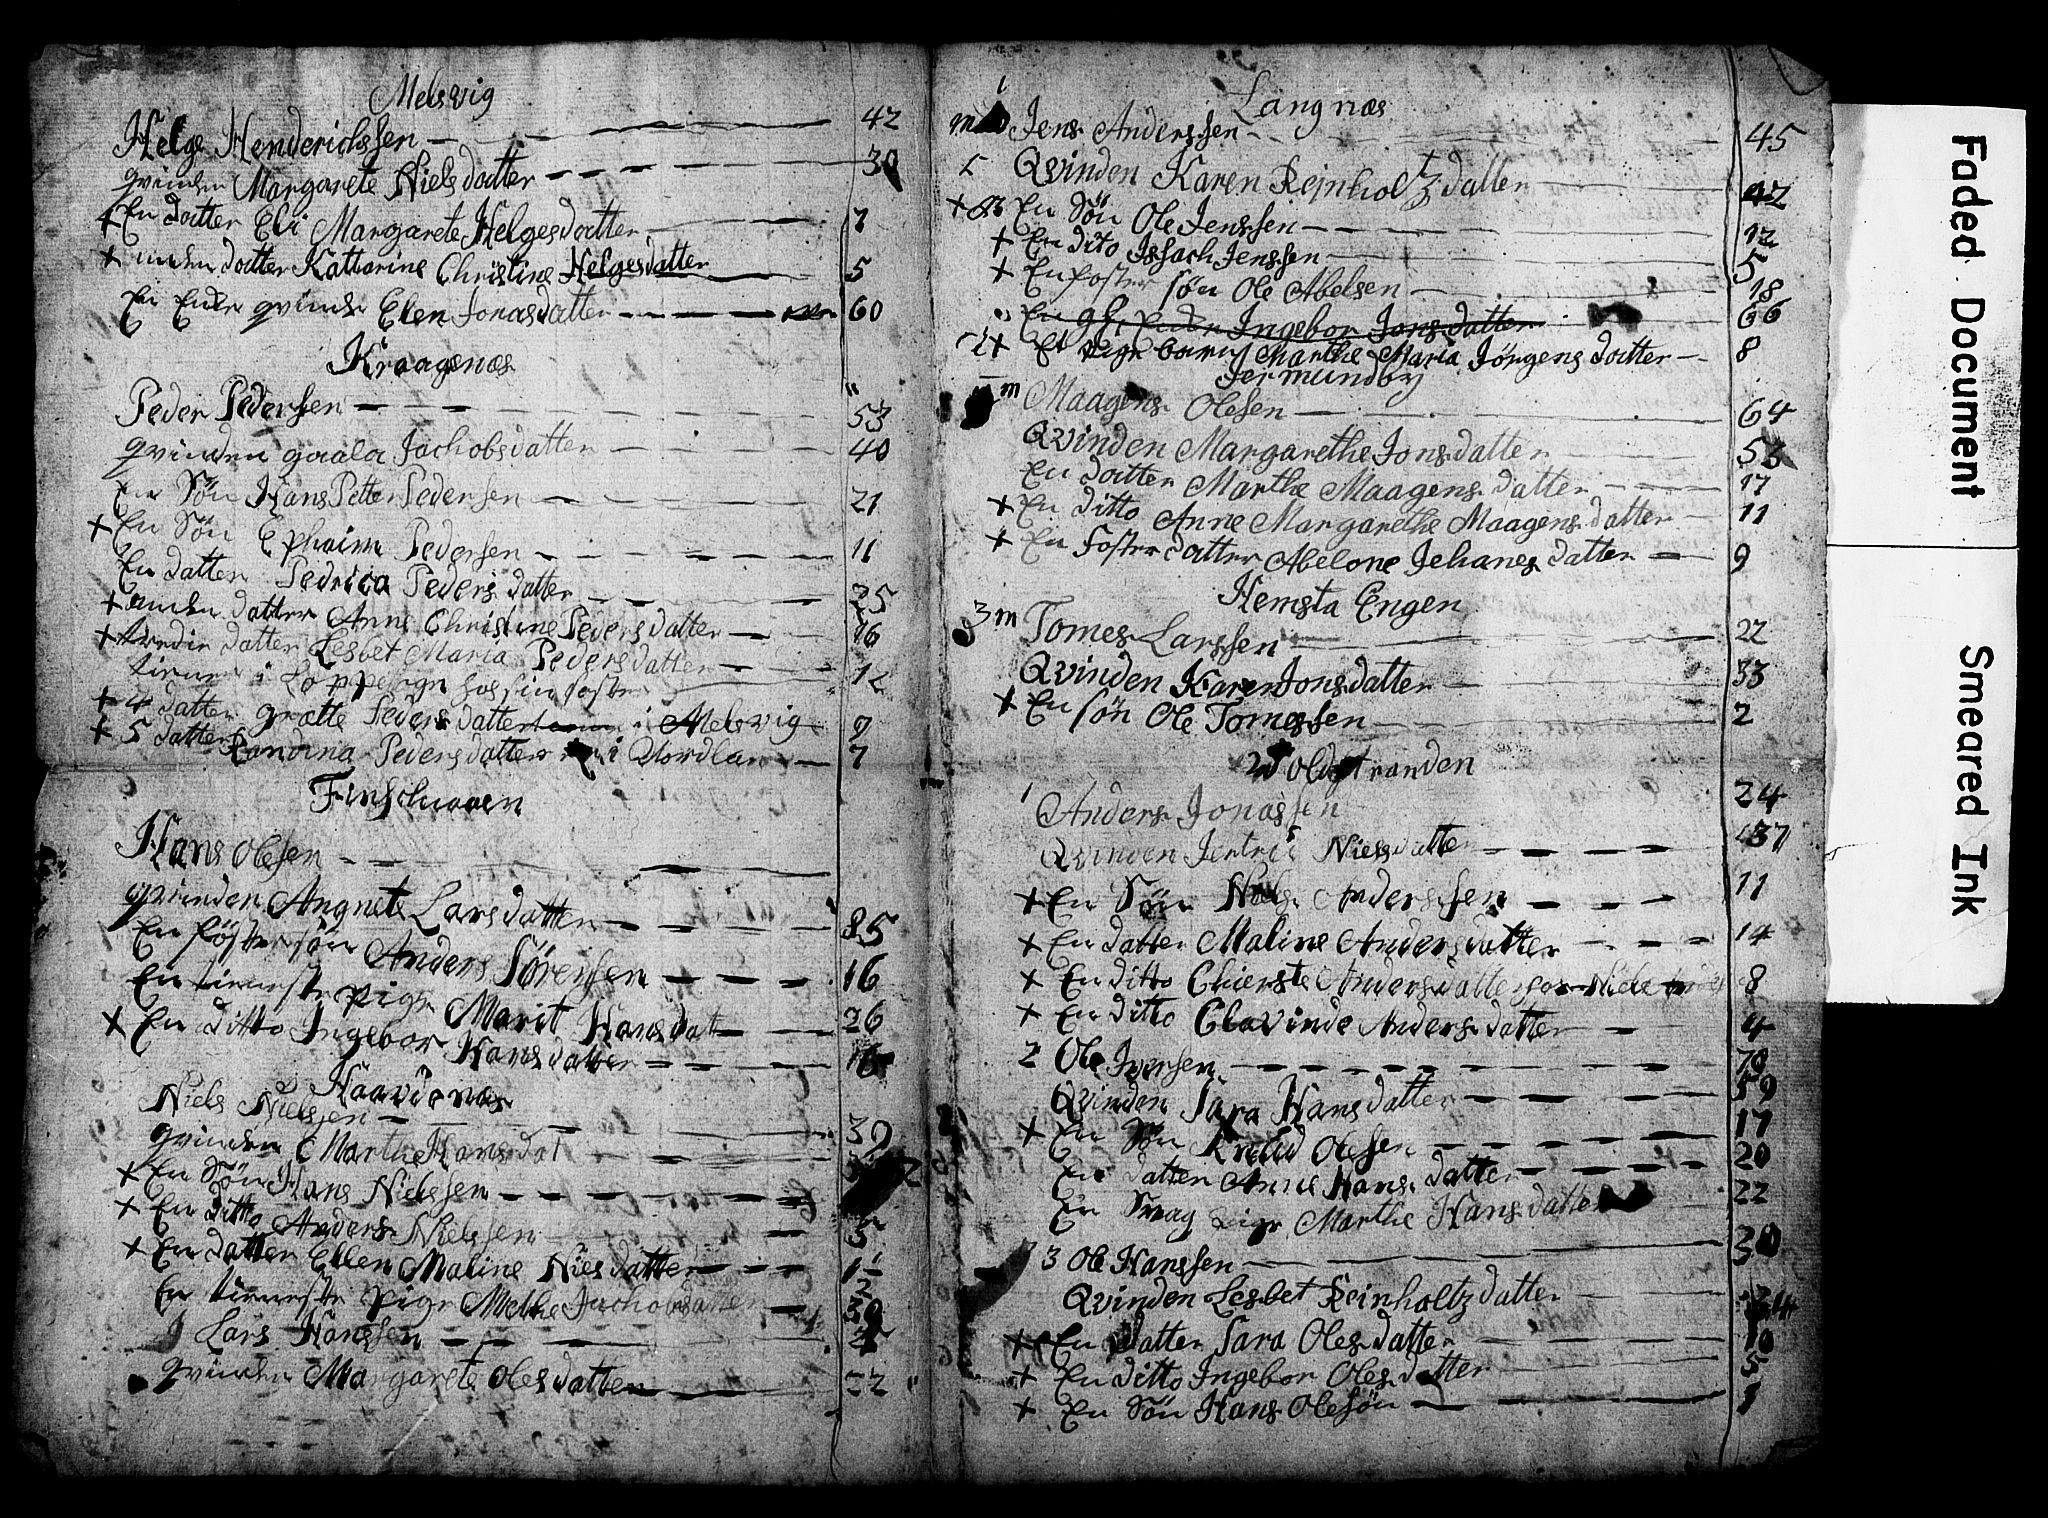 Melsvig
Helge Henderichssen 42
qvinden Margarete Nielsdatter 30
+ En datter Eli Margarete Helgesdatter 7
+ anden datter Kattarine Christine Helgesdatter 5
En Enke qvinde Elen Jonasdatter 60
Kraagenæs
Peder Pedersen 53
qvinden Jachobsdatter 40
En Sön Hans Petter Pedersen 21
+ En Sön Ephaim Pedersen 11
En datter Pedrica Peders datter 25
+ anden datter Anne Christine Pedersdatter 16
+ tredie datter Lesbet Maria Pedersdatter
tiene i hos sin foster 12
+ 4 datter grætte Pedersdatter i Melsvig 9
+ 5 datter Randina Pedersdatter i Nordlan 7
Finschuven
Hans Olesen
qvinden Angnete Larsdatter 85
En föster sön Anders Sörensen 16
En tieneste pige Marit Hansdat 26
+ En ditto Ingebor Hansdatter 16
Niels Nielssen 39
qvinden Marthe Hansdat
+ En Sön Hans Nielssen
+ En ditto Anders Nielssen
+ En datter Ellen Maline Nielsdatter
En tieneste pige Methe Jachobsdatter
Lars Hanssen
qvinden Margarete Olesdatter 22
Langnæs
Jens Anderssen 45
Qvinden Karen Reinholtzdatter 42
+ En Sön Ole Jenssen 12
+ En dito Issach Jenssen 5
+ En foster sön Ole Abelsen 18
Ingebor Jonsdatter 66
+ Et pige barn Marthe Maria Jörgens datter 8
Jermundby
m Maagens Olesen 64
Qvinden Margarethe Jonsdatter 53
En datter Marthe Maagens datter 17
+ En ditto Anne Margarethe Maagens datter 11
+ En Foster datter Abelone Jehanes datter 9
Hemsta Engen
3 m Tomes Larssen 22
Qvinden Karen Jonsdatter 33
+ En sön Ole Tomessen 2
1 Anders Jonassen 24
Qvinden Jertrü Nielsdatter 37
+ En Sön Niels Anderssen 11
+ En datter Maline Andersdatter 14
+ En ditto Chierste Andersdatter 8
+ En ditto Clavinde Andersdatter 4
2 Ole Iversen 70
Qvinden Sara Hansdatter 59
+ En Sön Olesen 17
En datter Anne Hans datter 20
En Svag pige Marthe Hansdatter 22
3 Ole Hanssen 30
Qvinden Lesbet Reinholtzdatter 34
+ En datter Sara Olesdatter 10
+ En ditto Ingebor Olesdatter 5
+ En Sön Hans Olesön 1
Faded Document
Smeared Ink